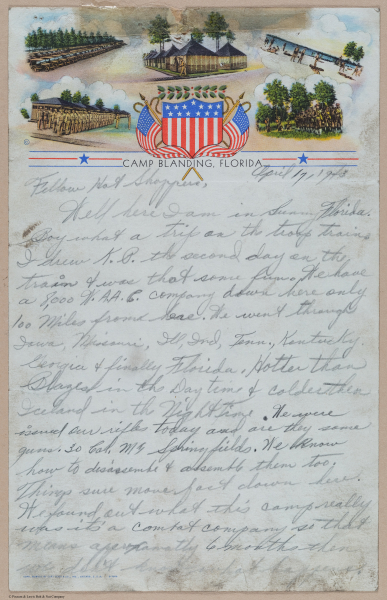 CAMP BLANDING, FLORIDA
April 17, 1943
Fellow Hot Shoppers,
Well here I am in Sunny Florida.
Boy what a trip on the troop trains
I drew K.P. the second day on the
train & was that some fun. We have
a 8000 W.A.A.C. company down here only
100 Miles from here. We went through
Iowa, Missouri, Ill, Ind, Tenn, Kentucky
Georgia & finally Florida. Hotter than
in the Day time & colder then
Iceland in the Night time. We were
issued our rifles today and are they some
guns. 30 Cal. M1 Springfields. We know
how to disassemble & assemble them too.
Things sure move fast down here.
We found out what this camp really
was it's a combat company so that
means 6 months then